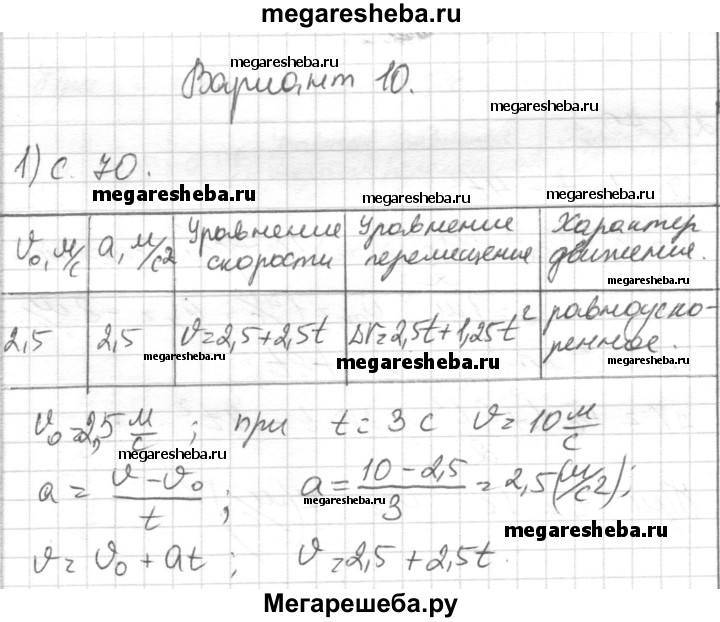 megaresheba.ru
megaresheba.ru
Вариант 10.
megaresheba.ru
1) с. 70.
megaresheba.ru
megaresheba.ru
megaresheba.ru
υ₀, м/с | a, м/с2 | Уравнение скорости | Уравнение перемещение | Характер движения.
megaresheba.ru
2,5 | 2,5 | υ=2,5+2,5t | Δr=2,5t+1,25t² | равноуско-ренное.
megaresheba.ru
megaresheba.ru
megaresheba.ru
υ₀=2,5 м/с ; при t=3 с υ=10 м/с
megaresheba.ru
a = (υ-υ₀)/t ; a = (10-2,5)/3 = 2,5 (м/с2);
megaresheba.ru
megaresheba.ru
υ=υ₀+at ; υ=2,5+2,5t.
Мегарешеба.ру